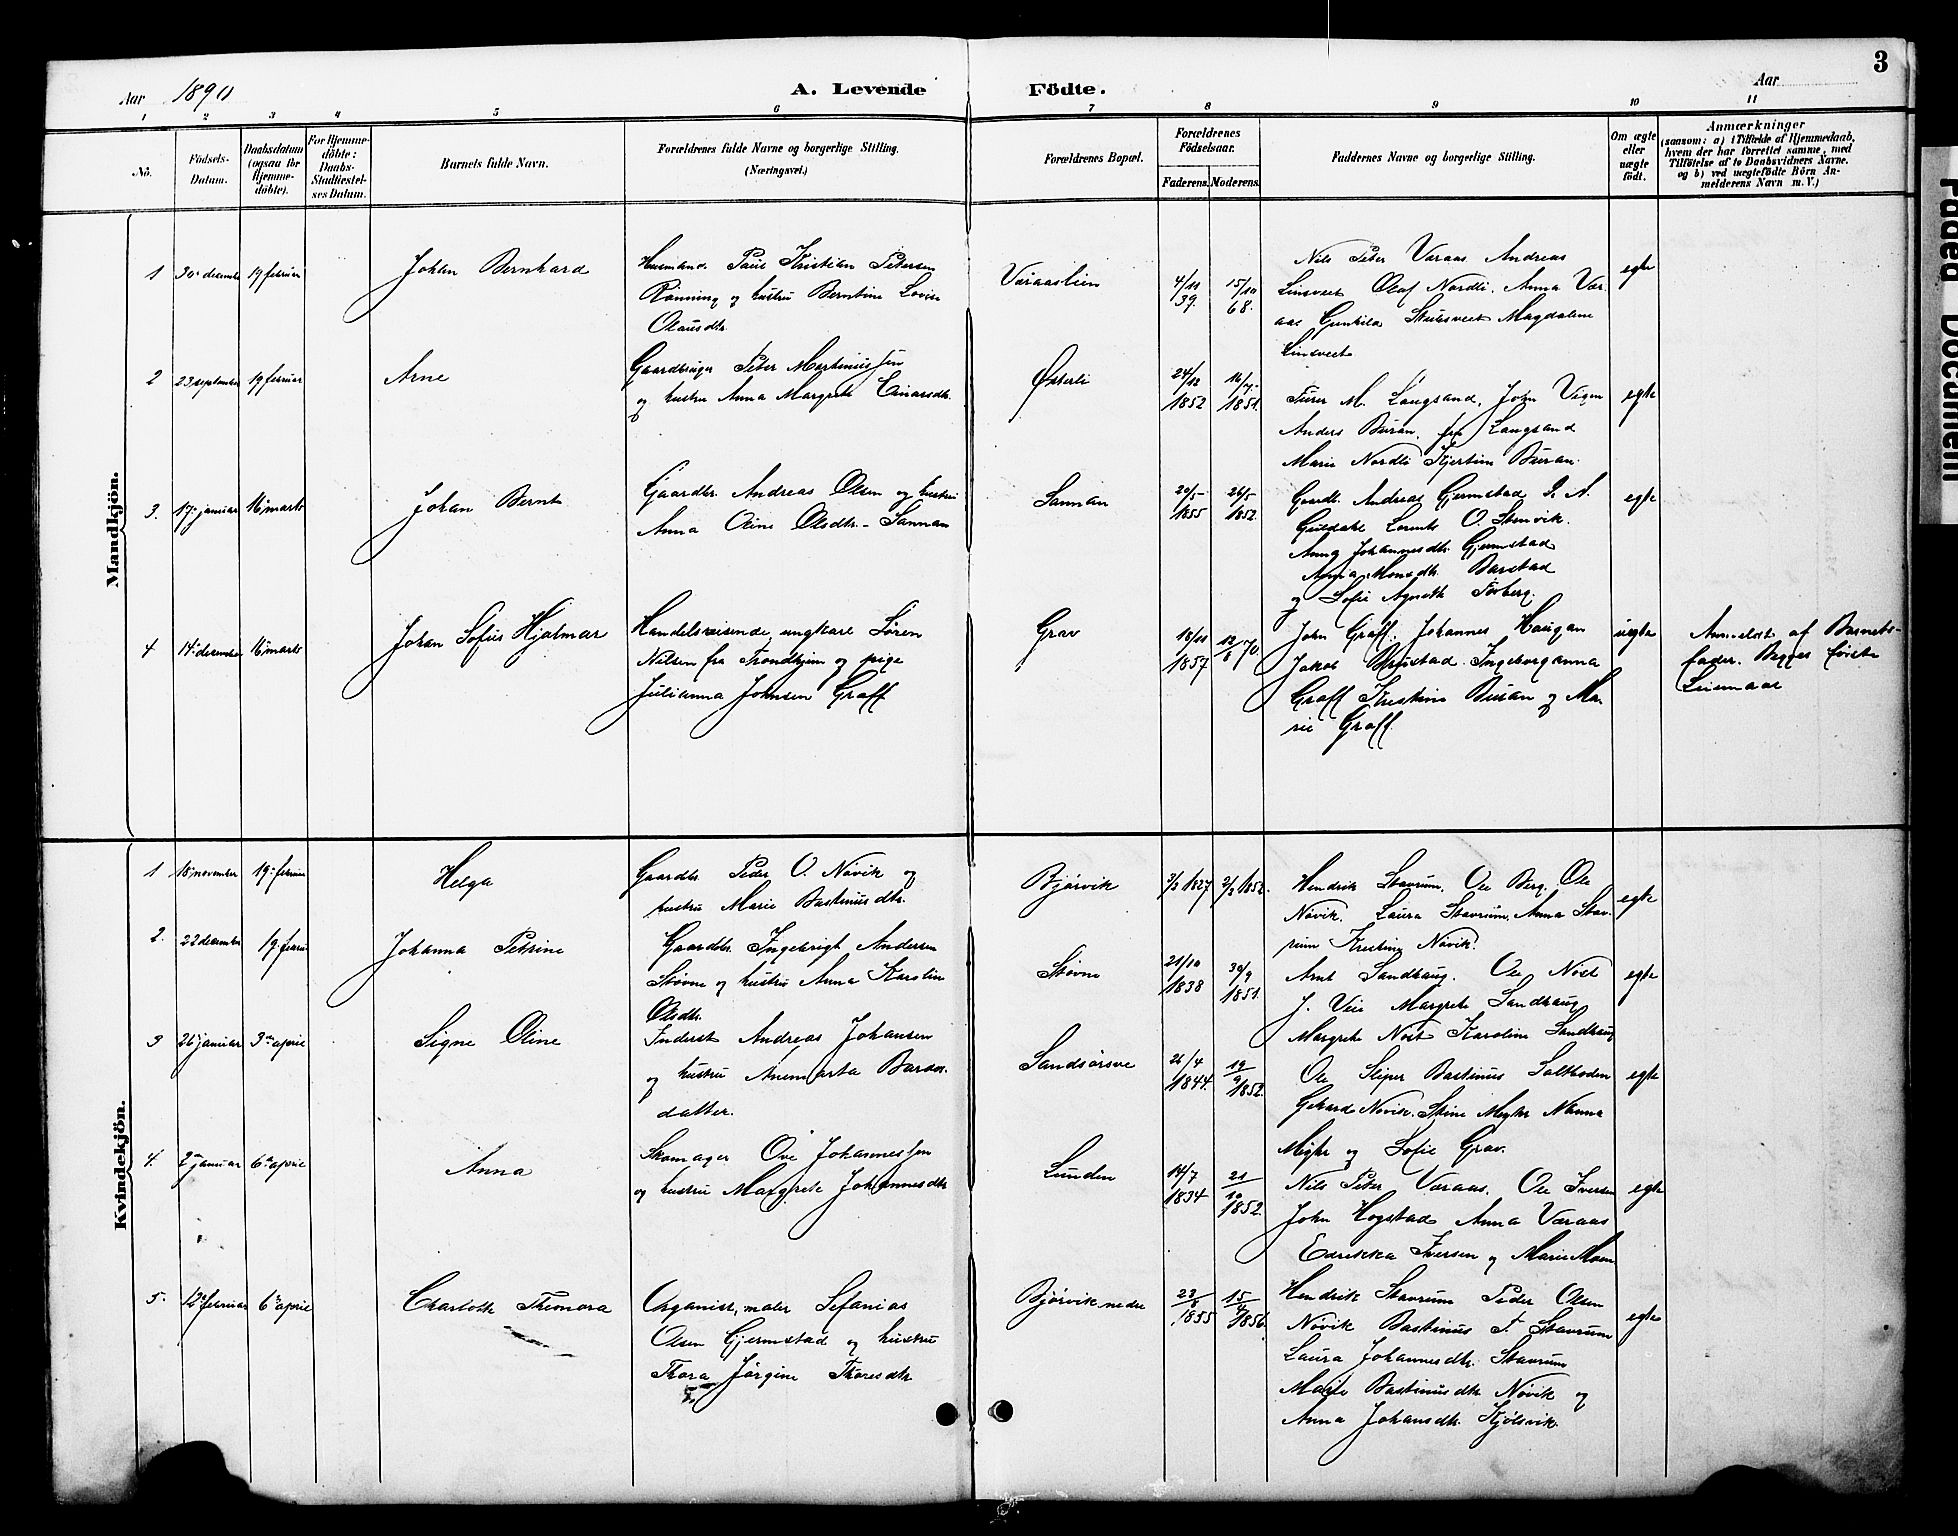 3
Aar 1890
A. Levende Födte.
Aar
1 2 3 4 5 6 7 8 9 10 11
No.
Födsels-
Datum.
Daabsdatum
(ogsaa for
Hjemme-
döbte).
For Hjemme-
döbte:
Daabs-
Stadfæstel-
ses Datum.
Barnets fulde Navn.
Forældrenes fulde Navne og borgerlige Stilling.
(Næringsvei.)
Forældrenes Bopæl.
Forældrenes
Födselsaar.
Faderens. Moderens.
Faddernes Navne og borgerlige Stilling.
Om ægte
eller
uægte
födt.
Anmærkninger
(saasom: a) i Tilfælde af Hjemmedaab,
hvem der har forrettet samme, med
Tilföielse af to Daabsvidners Navne.
og b) ved uægtefödte Börn An-
melderens Navn m. V.)
Mandkjön.
1 30 december 19 februar
Johan Bernhard
Husmand. Paul Kristian Petersen
Rönning og hustru Berntine Lovise
Olausdtr.
Væraaslien
4/11
39.
15/10
68.
Nils Peter Væraas Andreas
Linsveet Olaf Nordli. Anna Vær
aas Gunhild Magdalene
Linsveet
egte
2 23 september 19 februar
Arne
Gaardbruger Peter Martinussen
og hustru Anna Margrete Einarsdtr.
Østerli
24/12
1852
1851.
M. Langsand, John Vigen
Anders Buran, Langsand
Marie Nordli Kjerstin Buran.
egte
3. 17. januar 16 marts
Johan Bernt
Gaardbr. Andreas Olsen og hustru
Anna Oline Olsdtr. Sannan
Sannan
20/5
1855
26/5
1852.
Gaardb. Andreas Gjermstad P. A.
Guldahl Lorents O. Stenvik.
Anna Johannesdtr. Gjermstad
Anna Monsdtr. Barstad
og Sofie Agneth Forberg.
egte
4 14. december 16 marts
Johan Sofus Hjalmar
Handelsreisende, ungkarl Sören
Nilsen fra Trondhjem og pige
Julianna Johnsen Graff
Grav
1857
12/6 70.
John Graff. Johannes Haugan
Jakob Brustad. Ingeborganna
Graff Kristine Buran og Ma
rie Graff.
uegte
Anmeldt af Barnets-
fader. Begges förste
Leiermaal
Kvindekjön.
1 18 november 19. februar
Helga
Gaardbr. Peder O. Növik og
hustru Marie Bastinusdtr.
Bjørvik
3/3 1827 2/3 1852.
Hendrik Stavrum. Ole Berg. Ole
Növik. Laura Stavrum. Anna Stav
rum Kristine Növik.
egte
2. 22 december 19. februar
Johanna Petrine
Gaardbr. Ingebrigt Andersen
Stövne og hustru Anna Karoline
Olsdtr.
Stövne
21/10
1838
30/9
1851.
Arnt Sandhaug. Ole Nost
J. Veie Margrete Sandhaug
Margrete Nost Karoline Sandhaug
egte
3 26 januar 3. april
Signe Oline
Inderst Andreas Johansen
og hustru Anemarta Bards
datter.
Sandsörsve
26/4
1844.
19/9 1852.
Ole Sliper Bastinus Saltboden
Gerhard Növik. Stine Myhr Nanna
Myhr og Sofie Grav.
egte
4. 2 januar 6. april
Anna
Skomager Ove Johannessen
og hustru Margrete Johannesdtr
Lunden
14/7
1834
21/10
1852.
Nils Peter Væraas. Ole Iversen
John Hogstad Anna Væraas
Edrikka Iversen og Marie Moen
egte
5. 12 februar 6. april
Charlotte Theonora
Organist, maler Sefanias
Olsen Gjermstad og hustru
Thora Jörgine Thoresdtr
Bjørvik nedre
1855
15/4 1856.
Hendrik Stavrum Peder Olsen
Növik Bastinus T. Stavrum
Laura Johannesdtr. Stavrum
Marie Bastinusdtr Növik og
Anna Johansdtr. Kjölsvik.
egte
Faded Document